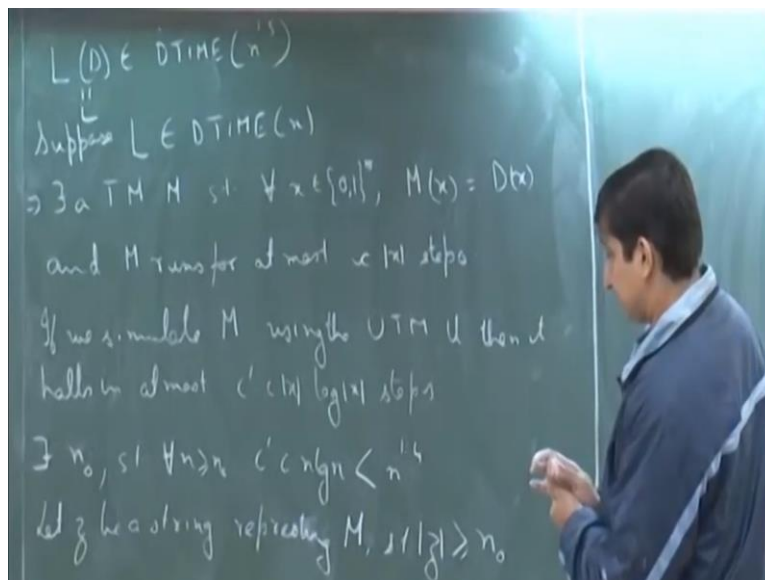 L(D) ∈ DTIME(n^1.5)
=
L
Suppose L ∈ DTIME(n)
⇒ ∃ a TM M s.t. ∀ x ∈ {0,1}*, M(x) = D(x)
and M runs for at most c|x| steps
If we simulate M using the UTM U then it
halts in at most c' c|x| log|x| steps
∃ n₀, st ∀n≥n₀ c' c n lg n < n^1.4
Let z be a string representing M, st |z| ≥ n₀